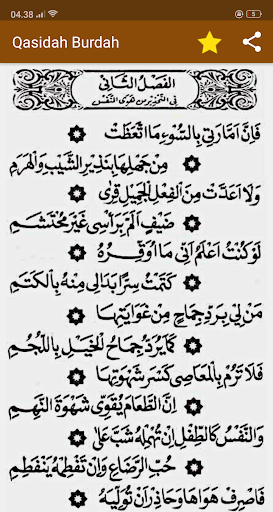 04.38
Qasidah Burdah
الفَصْلُ الثَّانِي
فِي التَّحْذِيرِ مِنْ هَوَى النَّفْسِ
فَإِنَّ أَمَّارَتِي بِالسُّوْءِ مَا اتَّعَظَتْ
مِنْ جَهْلِهَا بِنَذِيْرِ الشَّيْبِ وَالْهَرَمِ
وَلَا أَعَدَّتْ مِنَ الْفِعْلِ الْجَمِيْلِ قِرَى
ضَيْفٍ أَلَمَّ بِرَأْسِي غَيْرَ مُحْتَشَمِ
لَوْ كُنْتُ أَعْلَمُ أَنِّي مَا أُوَقِّرُهُ
كَتَمْتُ سِرًّا بَدَا لِي مِنْهُ بِالْكَتَمِ
مَنْ لِي بِرَدِّ جِمَاحٍ مِنْ غَوَايَتِهَا
كَمَا يُرَدُّ جِمَاحُ الْخَيْلِ بِاللُّجُمِ
فَلَا تَرُمْ بِالْمَعَاصِي كَسْرَ شَهْوَتِهَا
إِنَّ الطَّعَامَ يُقَوِّي شَهْوَةَ النَّهِمِ
وَالنَّفْسُ كَالطِّفْلِ إِنْ تُهْمِلْهُ شَبَّ عَلَى
حُبِّ الرَّضَاعِ وَإِنْ تَفْطِمْهُ يَنْفَطِمِ
فَاصْرِفْ هَوَاهَا وَحَاذِرْ أَنْ تُوَلِّيَهُ